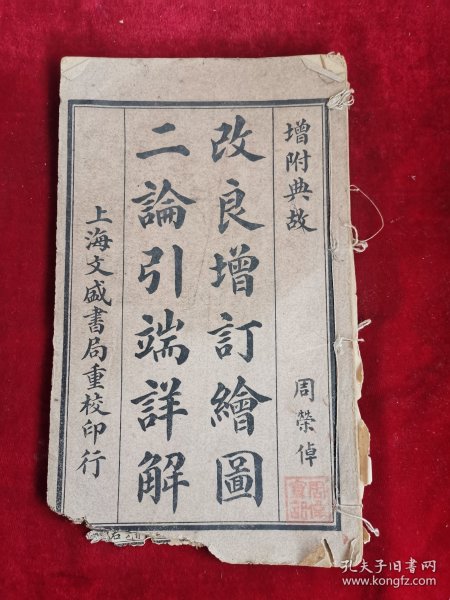 增附典故
周榮倬
改良增訂繪圖
二論引端詳解
上海文盛書局重校印行
孔夫子旧书网
www.kongfz.com